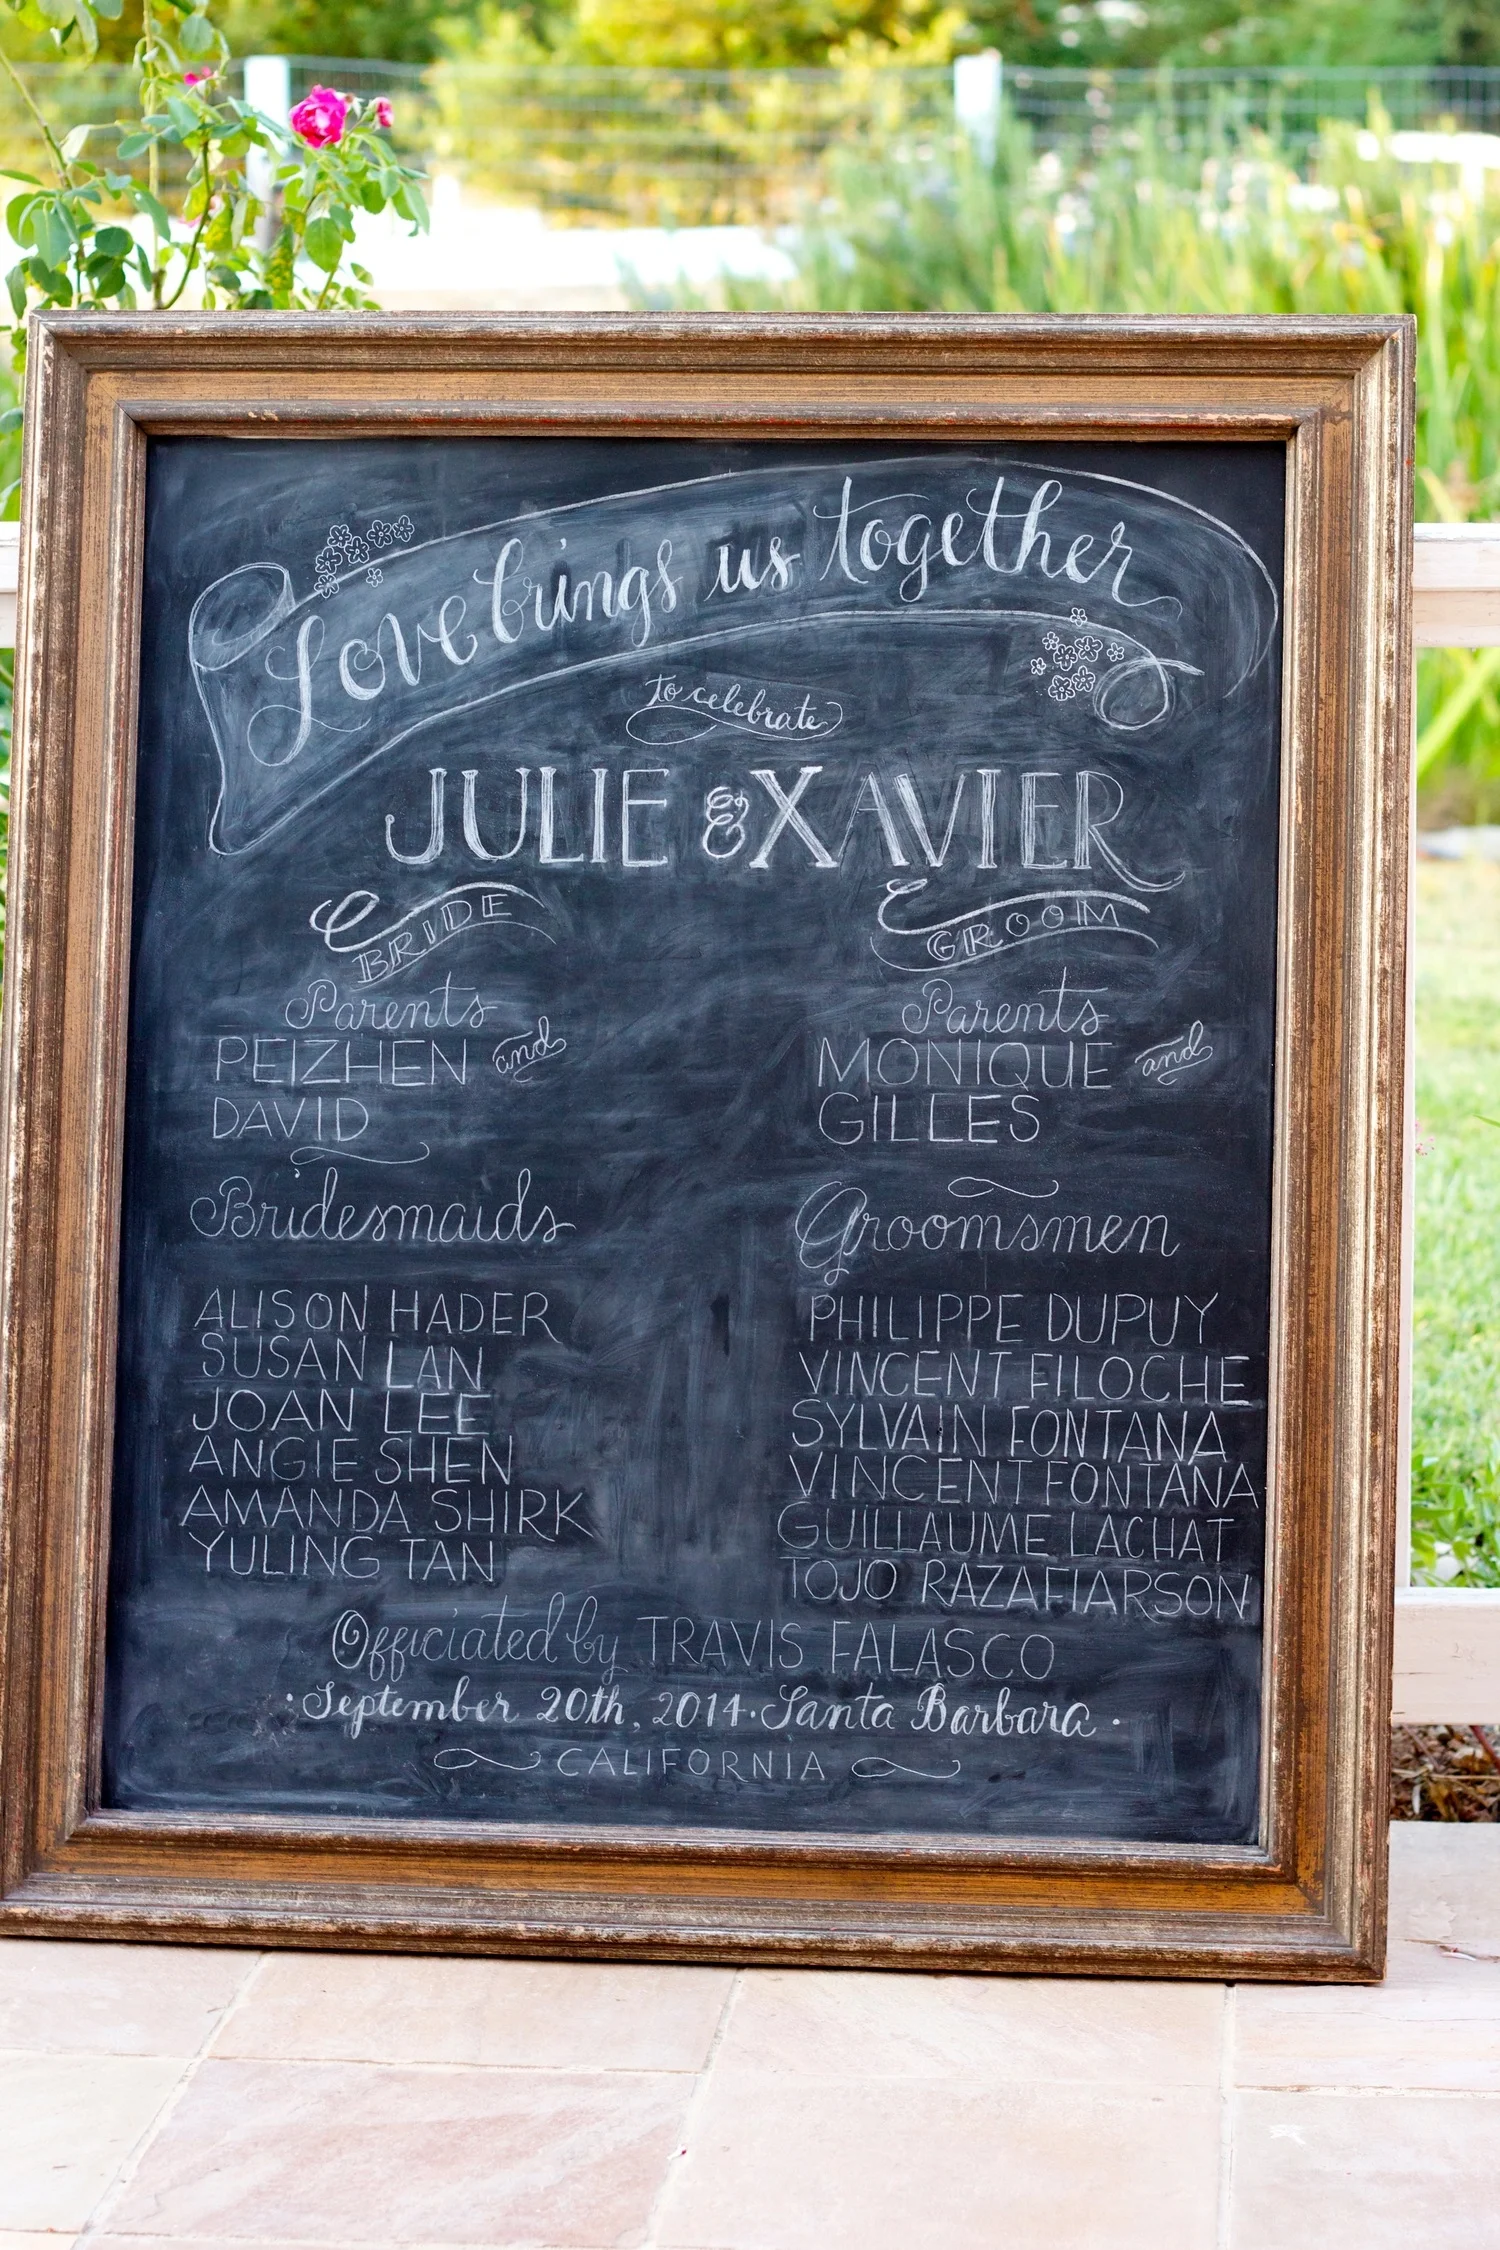 Love brings us together
to celebrate
JULIE & XAVIER
BRIDE
Parents
PEIZHEN and
DAVID
Bridesmaids
ALISON HADER
SUSAN LAN
JOAN LEE
ANGIE SHEN
AMANDA SHIRK
YULING TAN
GROOM
Parents
MONIQUE and
GILLES
Groomsmen
PHILIPPE DUPUY
VINCENT FILOCHE
SYLVAIN FONTANA
VINCENT FONTANA
GUILLAUME LACHAT
TOJO RAZAFIARSON
Officiated by TRAVIS FALASCO
· September 20th, 2014 · Santa Barbara ·
CALIFORNIA